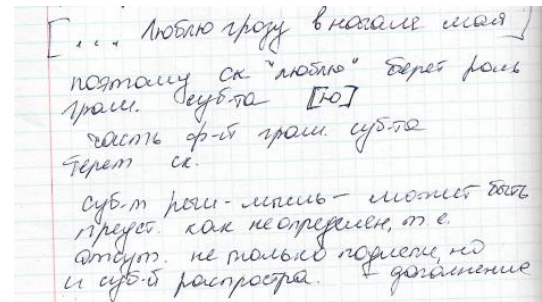 [... Люблю грозу в начале мая]
поэтому ск "люблю" берет роль
грам. суб-та [ю]
часть ф-й грам. суб-та
терет ск.
суб-т речи-мысль - может быть
предст. как неопределен, т.е.
отсут. не только подлежи, но
и суб-й распростра. + дополнение